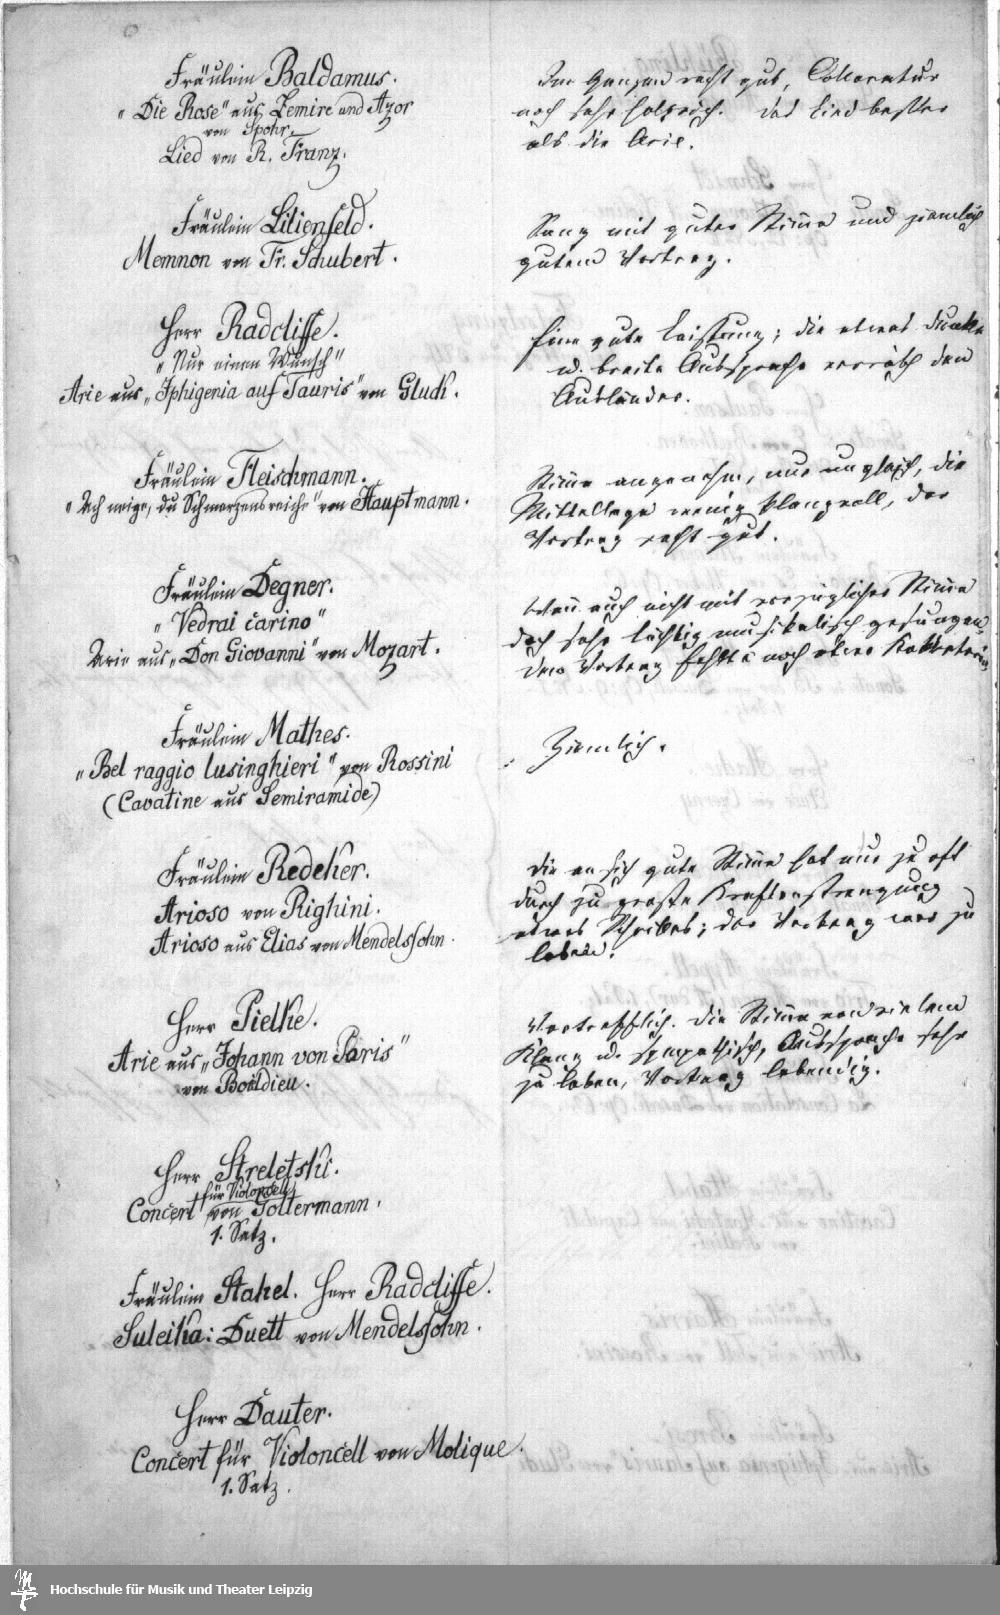 Fräulein Baldamus.
"Die Rose" aus Zemire und Azor
von Spohr.
Lied von R. Franz.
Im Ganzen recht gut, Colloratur
noch sehr holprich. Das Lied besser
als die Arie.
Fräulein Lilienfeld.
Memnon von Fr. Schubert.
Sang mit guter Stimme und ziemlich
gutem Vortrag.
Herr Radcliffe.
"Nur einen Wunsch"
Arie aus "Iphigenia auf Tauris" von Gluck.
Eine gute Leistung; die etwas dunkle
u. breite Aussprache verräth den
Ausländer.
Fräulein Fleischmann.
"Ach neige, du Schmerzensreiche" von Hauptmann.
Stimme angenehm, nur ungleich, die
Mittellage wenig klangvoll, der
Vortrag recht gut.
Fräulein Degner.
"Vedrai carino"
Arie aus "Don Giovanni" von Mozart.
Wenn auch nicht mit vorzüglicher Stimme
doch sehr tüchtig musikalisch gesungen,
dem Vortrag fehlte noch etwas Koketterie
Fräulein Mathes.
"Bel raggio lusinghieri" von Rossini
(Cavatine aus Semiramide)
Ziemlich.
Fräulein Redeker.
Arioso von Righini.
Arioso aus Elias von Mendelssohn.
Die an sich gute Stimme hat nur zu oft
durch zu große Kraftanstrengung
etwas Scharfes; der Vortrag war zu
loben.
Herr Pielke.
Arie aus "Johann von Paris"
von Boildieu.
Vortrefflich. Die Stimme von vielem
Klang u. sympathisch, Aussprache sehr
zu loben, Vortrag lebendig.
Herr Streletski.
für Violoncell
Concert von Goltermann.
1. Satz.
Fräulein Stahel. Herr Radcliffe.
Suleika: Duett von Mendelssohn.
Herr Dauter.
Concert für Violoncell von Molique.
1. Satz.
Hochschule für Musik und Theater Leipzig